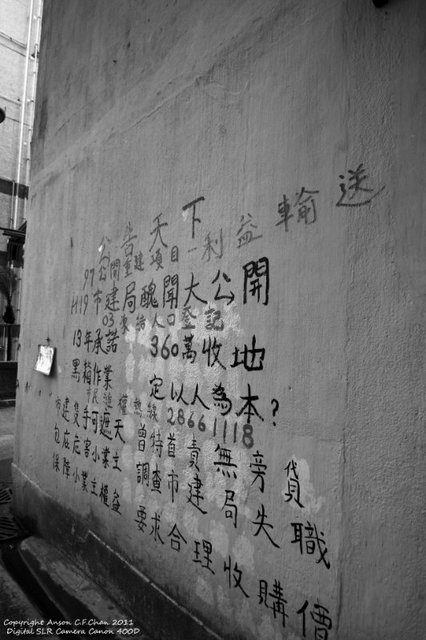 公告天下 利益輸送
97公開重建項目
H19市建局醜聞大公開
03 人口登記
13年承諾 360萬收地
黑箱作業 定以人為本?
28661118
市建隻手可遮天 曾特首責無旁貸
包庇 小業主 調查市建局失職
保障小業主權益 要求合理收購價
Copyright Anson C.F.Chan 2011
Digital SLR Camera Canon 400D